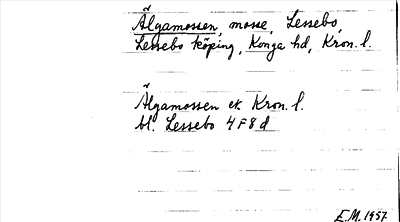 Älgamossen, mosse, Lessebo,
Lessebo köping, Konga hd, Kron. l.
Älgamossen ek Kron. l.
bl. Lessebo 4F8d
E.M. 1957